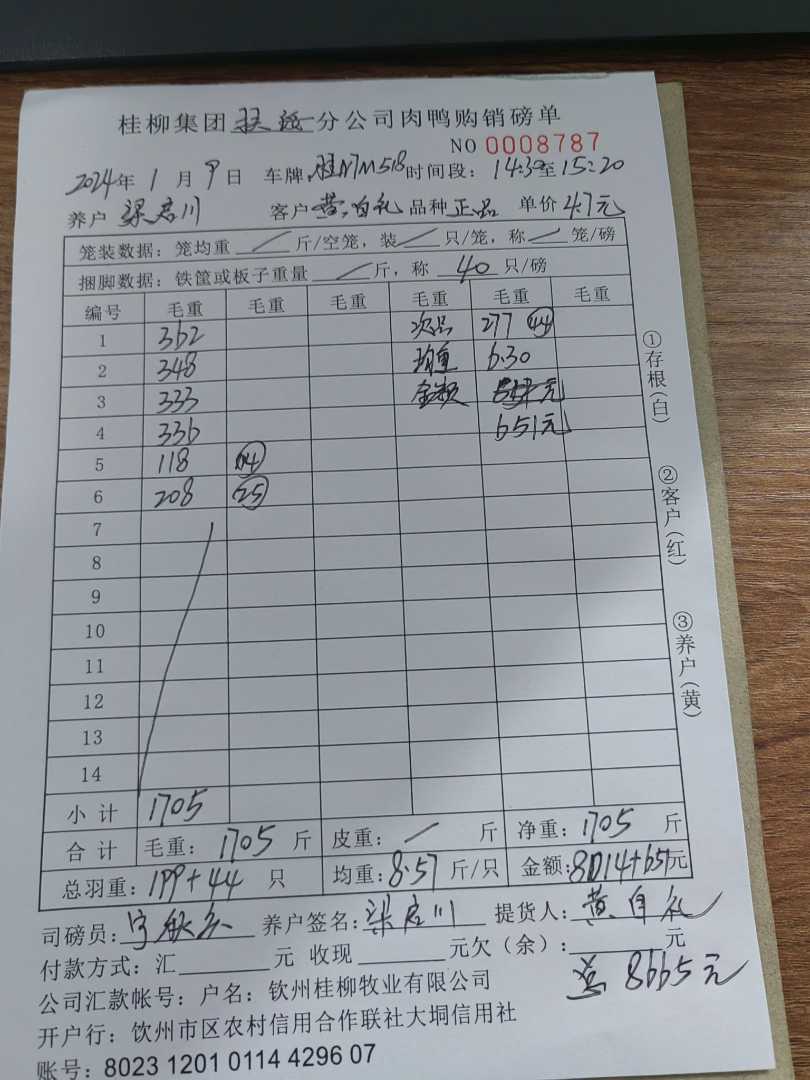 桂柳集团 分公司肉鸭购销磅单
NO 0008787
2024年 1 月 9 日 车牌 桂N7M518 时间段: 14:30至15:20
养户 梁启川 客户 黄自礼 品种 正品 单价 4.7元
笼装数据: 笼均重 / 斤/空笼, 装 / 只/笼, 称 / 笼/磅
捆脚数据: 铁筐或板子重量 / 斤, 称 40 只/磅
编号 毛重 毛重 毛重 毛重 毛重 毛重
1 362 次品 277 44
2 348 均重 6.30
3 333 金额 元
4 336 651元
5 118 14
6 208 25
7
8
9
10
11
12
13
14
小计 1705
合计 毛重: 1705 斤 皮重: / 斤 净重: 1705 斤
总羽重: 199+44 只 均重: 8.57 斤/只 金额: 8014+651元
司磅员: 养户签名: 梁启川 提货人: 黄自礼
付款方式: 汇 元 收现 元欠(余): 元
总 8665元
公司汇款帐号: 户名: 钦州桂柳牧业有限公司
开户行: 钦州市区农村信用合作联社大垌信用社
账号: 8023 1201 0114 4296 07
①存根(白)
②客户(红)
③养户(黄)